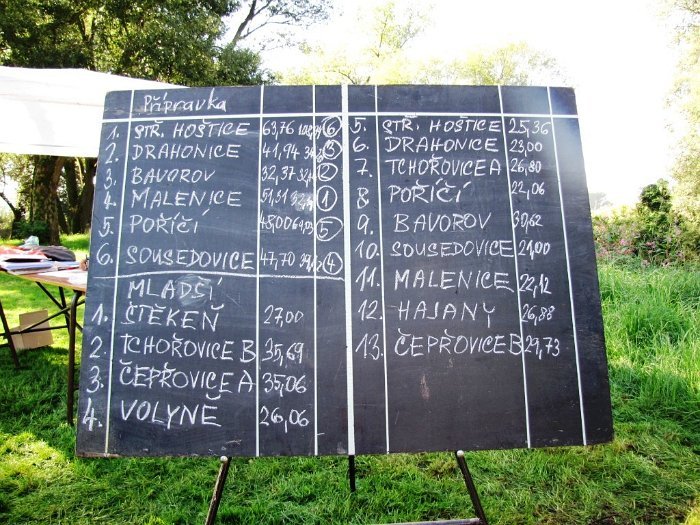 Přípravka
1. STŘ. HOŠTICE 63,76 6
2. DRAHONICE 41,94 3
3. BAVOROV 32,37 2
4. MALENICE 51,51 1
5. POŘÍČÍ 48,00 5
6. SOUSEDOVICE 47,70 4
MLADŠÍ
1. ŠTĚKEŇ 27,00
2. TCHOŘOVICE B 35,69
3. ČEPŘOVICE A 35,06
4. VOLYNĚ 26,06
5. STŘ. HOŠTICE 25,36
6. DRAHONICE 23,00
7. TCHOŘOVICE A 26,80
8 POŘÍČÍ 22,06
9. BAVOROV 30,62
10. SOUSEDOVICE 21,00
11. MALENICE 22,12
12. HAJANY 26,88
13. ČEPŘOVICE B 29,73